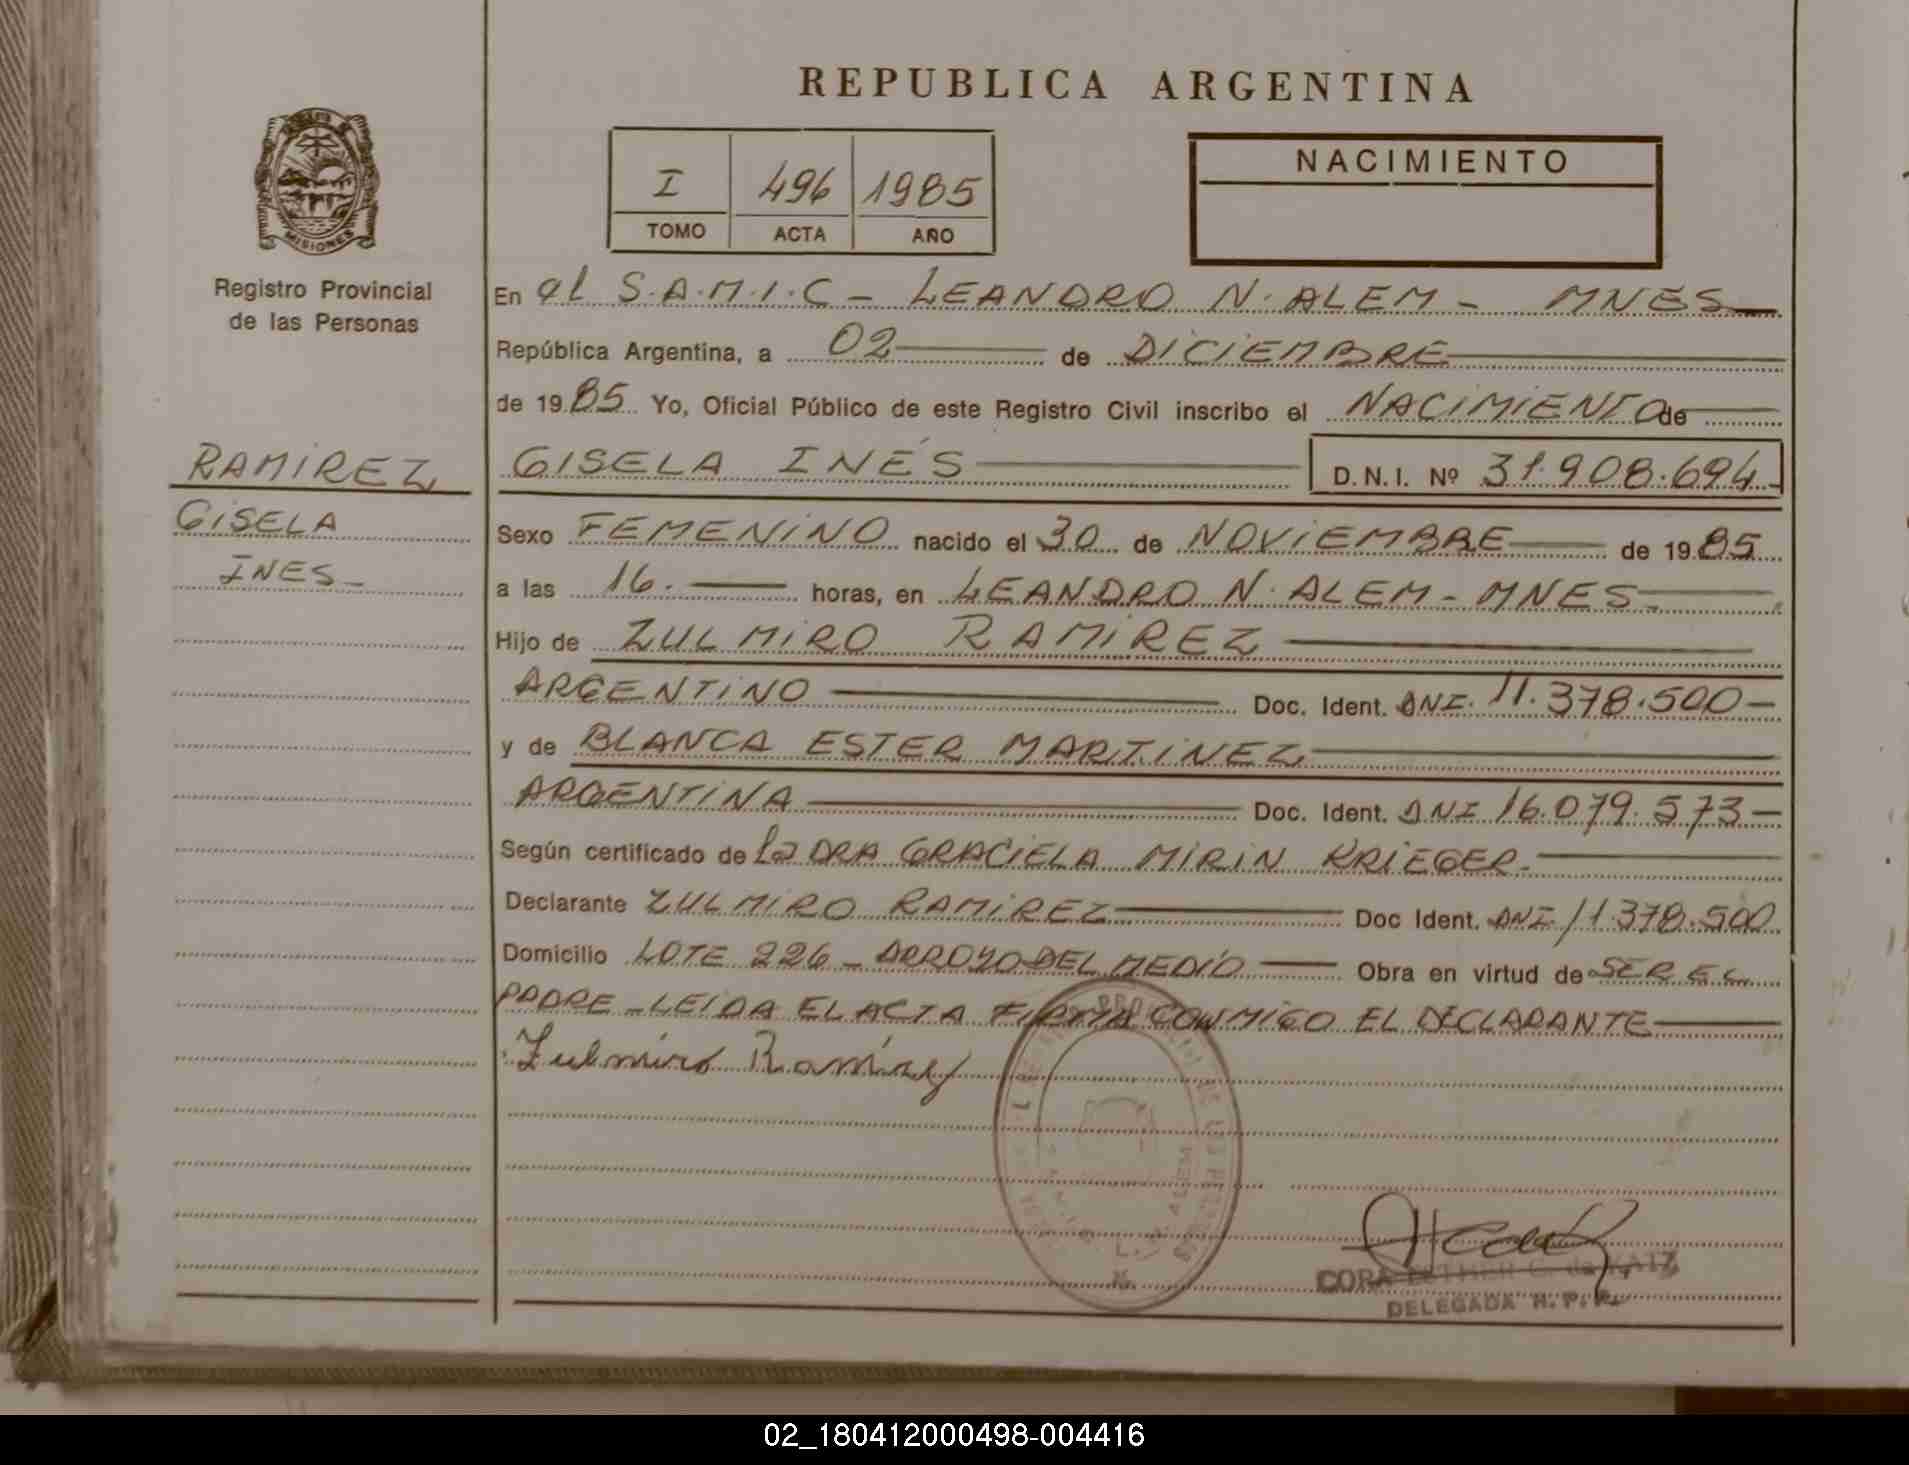 REPUBLICA ARGENTINA
MISIONES
Registro Provincial
de las Personas
I 496 1985
TOMO ACTA AÑO
NACIMIENTO
En el S.A.M.I.C - LEANDRO N. ALEM - MNES
República Argentina, a 02 de DICIEMBRE
de 1985 Yo, Oficial Público de este Registro Civil inscribo el NACIMIENTO de
RAMIREZ
GISELA
INES
GISELA INÉS D.N.I. Nº 31.908.694
Sexo FEMENINO nacido el 30 de NOVIEMBRE de 1985
a las 16. horas, en LEANDRO N. ALEM - MNES.
Hijo de ZULMIRO RAMIREZ
ARGENTINO Doc. Ident. DNI. 11.378.500
y de BLANCA ESTER MARTINEZ
ARGENTINA Doc. Ident. DNI 16.079.573
Según certificado de la DRA GRACIELA MIRIN KRIEGER.
Declarante ZULMIRO RAMIREZ Doc Ident. DNI 11.378.500
Domicilio LOTE 226 - ARROYO DEL MEDIO Obra en virtud de SER EL
PADRE - LEIDA EL ACTA FIRMA CONMIGO EL DECLARANTE
Zulmiro Ramirez
ALEM
CORA ESTHER G. de KATZ
DELEGADA R.P.P.
02_180412000498-004416